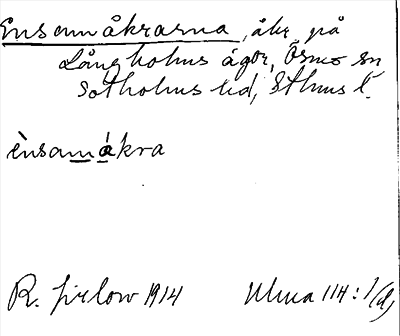 Ensamåkrarna, åkr på
Långholms ägor, Ösmo sn
Sotholms hd, Sthms l.
ènsamåkra
R. 1914 Ulma 114:1(d)